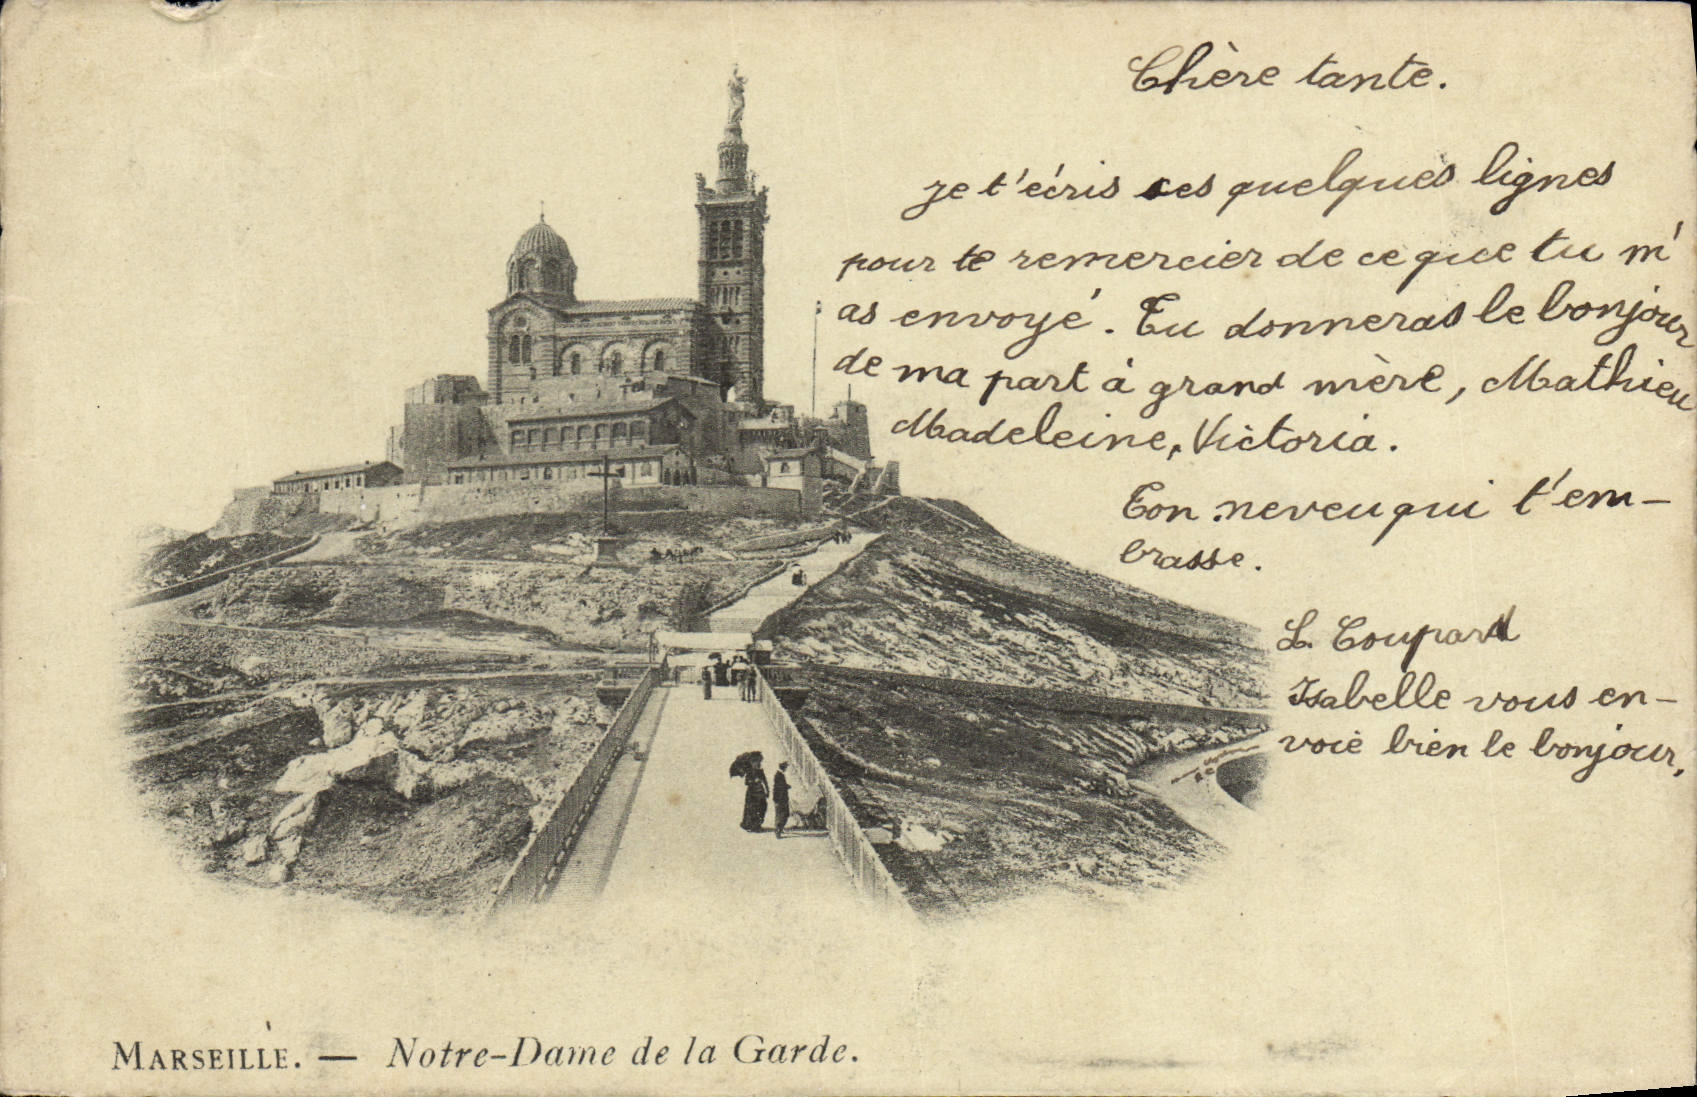 Chère tante.
je t'écris ces quelques lignes
pour te remercier de ce que tu m'
as envoyé. Tu donneras le bonjour
de ma part à grand mère, Mathieu
Madeleine, Victoria.
Ton neveu qui t'em-
brasse.
L. Coupard
Isabelle vous en-
voie bien le bonjour,
MARSEILLE. — Notre-Dame de la Garde.